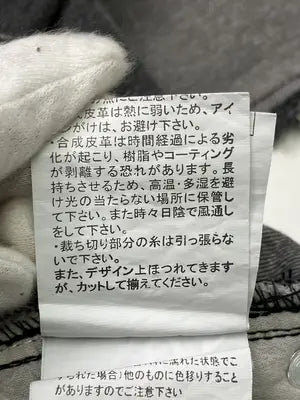 の点にご注意下さい。
成皮革は熱に弱いため、アイ
ンがけは、お避け下さい。
・合成皮革は時間経過による劣
化が起こり、樹脂やコーティング
が剥離する恐れがあります。長
持ちさせるため、高温・多湿を避
け光の当たらない場所に保管し
て下さい。また時々日陰で風通し
をして下さい。
・裁ち切り部分の糸は引っ張らな
いで下さい。
また、デザイン上ほつれてきます
が、カットして揃えてください。
濡れた状態でこ
すられた場合)他のものに色移りすること
がありますのでご注意下さい